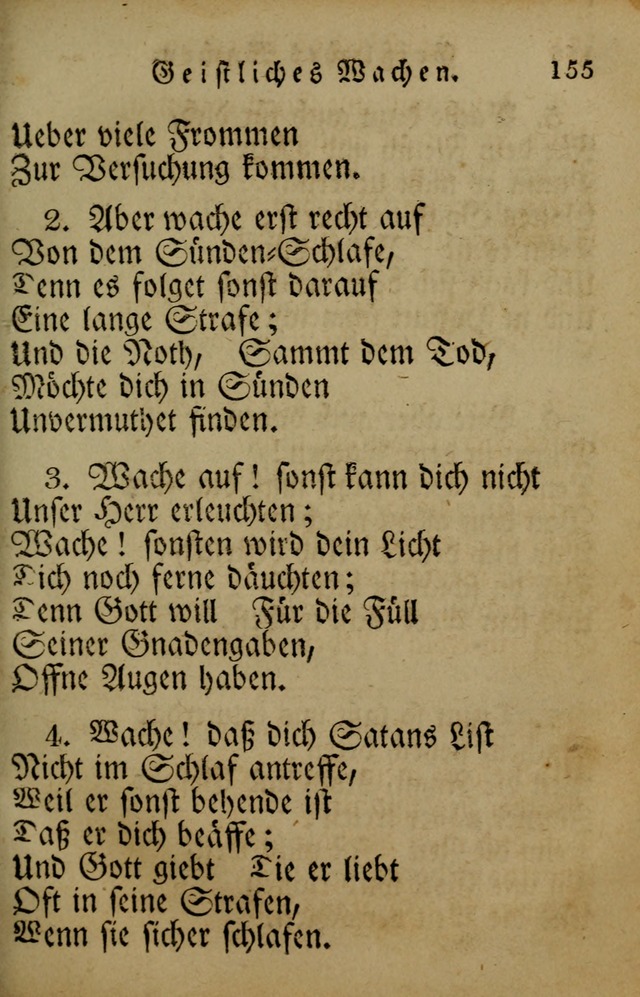 Geistliches Wachen. 155
Ueber viele Frommen
Zur Versuchung kommen.
2. Aber wache erst recht auf
Von dem Sünden-Schlafe,
Denn es folget sonst darauf
Eine lange Strafe;
Und die Noth, Sammt dem Tod,
Möchte dich in Sünden
Unvermuthet finden.
3. Wache auf! sonst kann dich nicht
Unser Herr erleuchten;
Wache! sonsten wird dein Licht
Dich noch ferne däuchten;
Denn Gott will Für die Füll
Seiner Gnadengaben,
Offne Augen haben.
4. Wache! daß dich Satans List
Nicht im Schlaf antreffe,
Weil er sonst behende ist
Daß er dich beäffe;
Und Gott giebt Die er liebt
Oft in seine Strafen,
Wenn sie sicher schlafen.